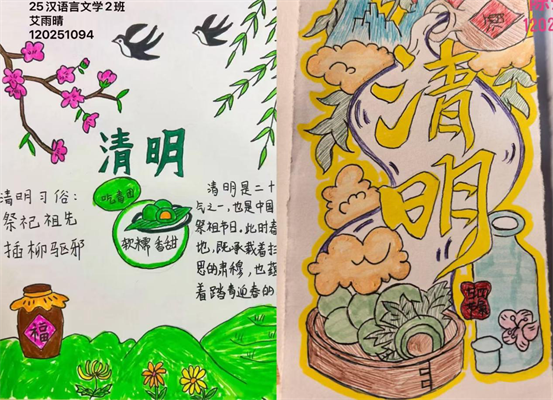 25汉语言文学2班
艾雨晴
120251094
清明
清明习俗：
祭祀祖先
插柳驱邪
吃青团
软糯香甜
清明是二十
气之一，也是中国
祭祖节日，此时春
地，既承载着扫
思的肃穆，也蕴
着踏青迎春的
福
清明